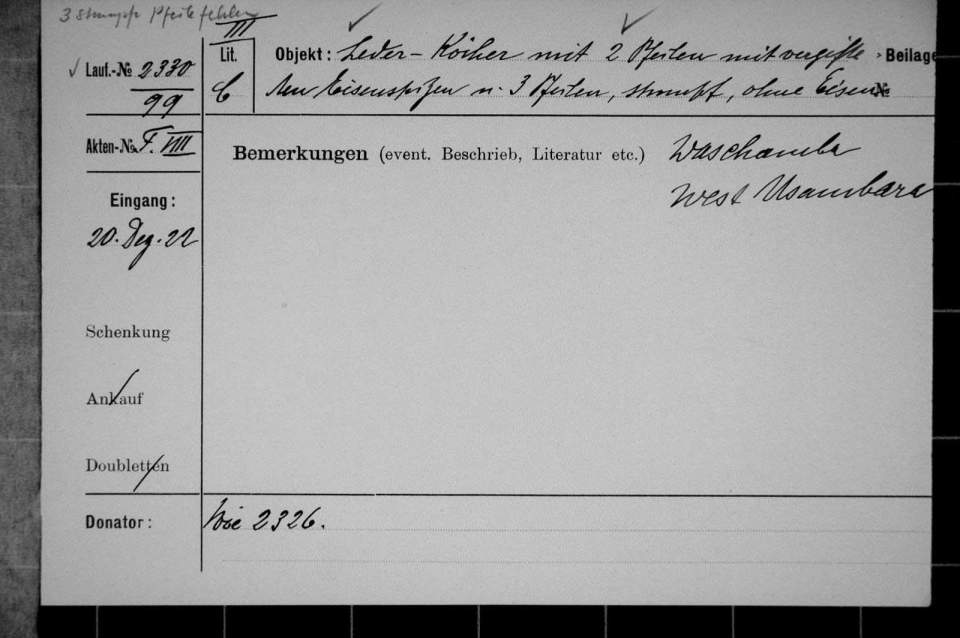 3 stumpfe Pfeile fehlen
III
Lauf.-№ 2330
99
Lit.
C
Objekt: Leder-Köcher mit 2 Pfeilen mit vergifte Beilage
ten Eisenspitzen u. 3 Pfeilen, stumpf, ohne Eisen №
Akten-№ F. VIII
Bemerkungen (event. Beschrieb, Literatur etc.) Waschamba
West Usambara
Eingang:
20. Dez. 22
Schenkung
Ankauf
Doubletten
Donator: Wie 2326.